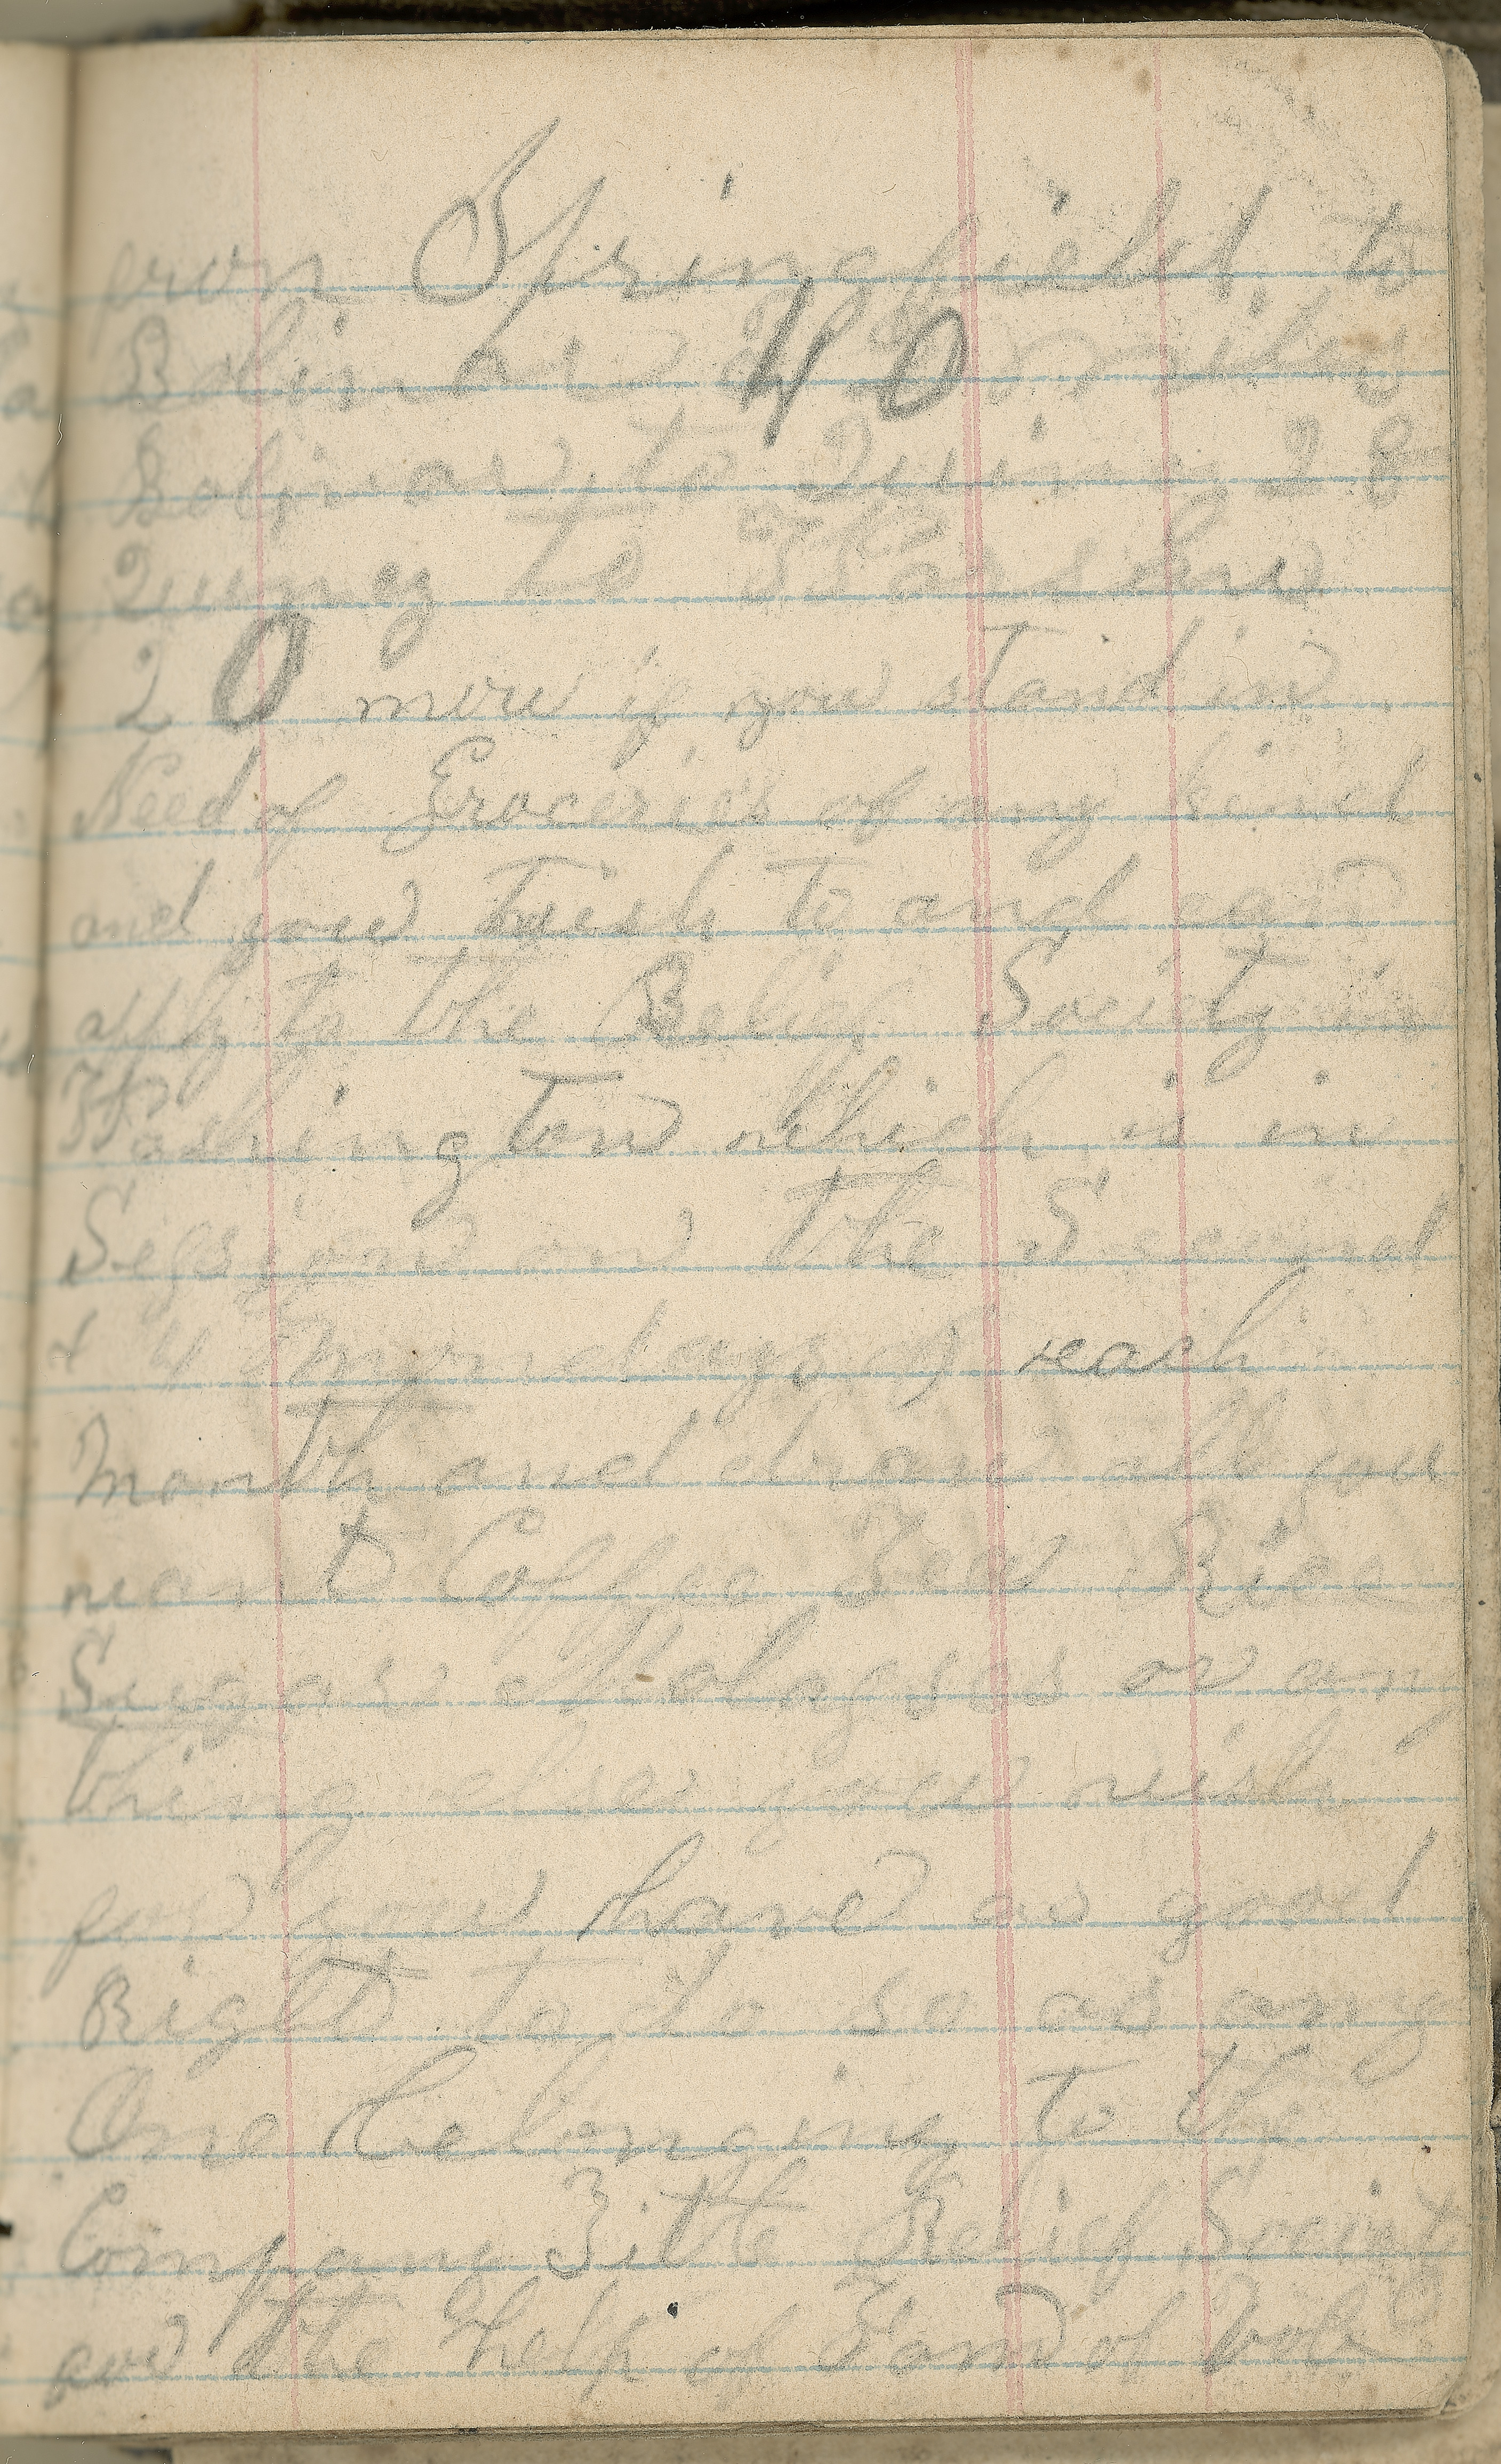 from Springfield to
Bolivar is 40 miles
Bolivar to Quincy 28
Quincy to Warsaw
20 more if you stand in
Need of Groceries of any kind
and you wish to and can
apply to the Relief Society in
Washington which is in
Session on the Second
& 4 mondays of each
Month and draw all you
want Coffee Tea Rice
Sugar Molasses or any
thing else you wish
for you have as good
Right to do so as any
One belonging to the
Company Relief Society
for the help of